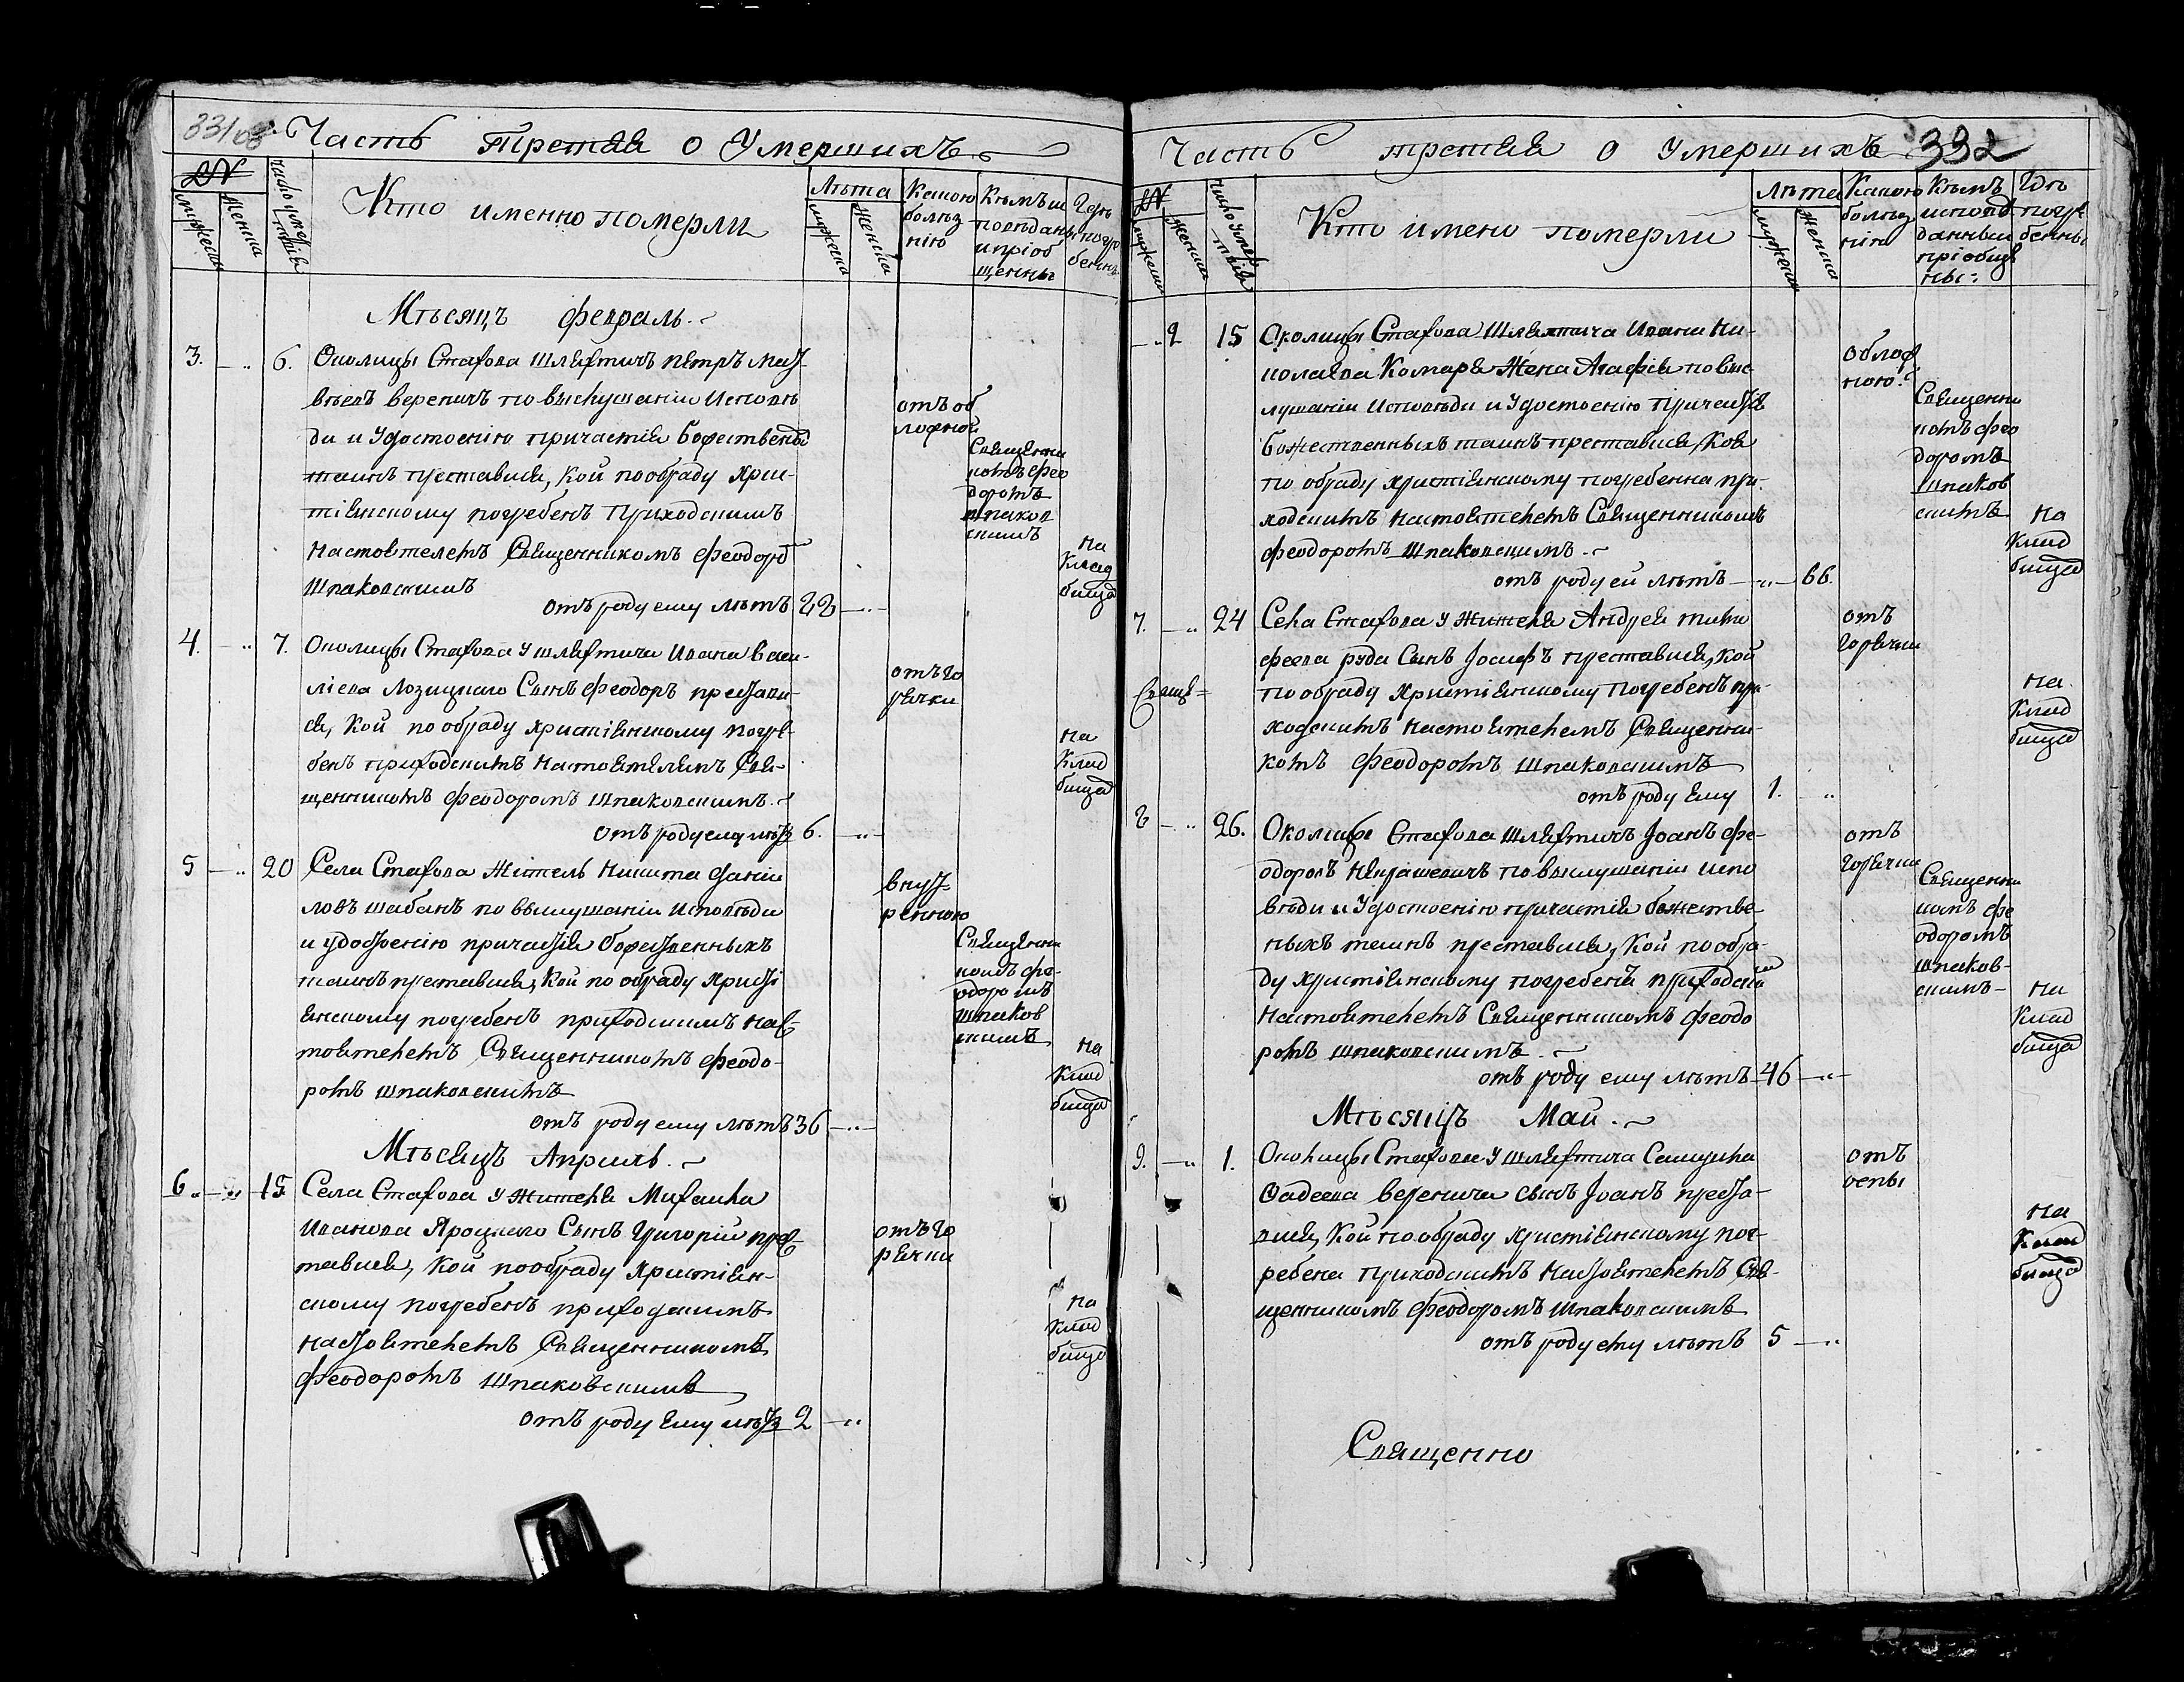 331об
Часть третяя о Умершихъ
№
мужеска
Женска
число умертвія
Кто именно померли
Лѣта
мужеска
женска
Какою
болѣз
нію
Кѣмъ ис
повѣданы
и пріоб
щенны
Гдѣ
погре
бенны
Мѣсяцъ февраль.
3. — .. 6. Околицы Стахова Шляхтичъ Петръ Мат-
вѣевъ вереничъ по выслушаніи Исповѣ
ди и Удостоенію причастія Божественны
таинъ преставися, Кой по обряду Хрис-
тіянскому погребенъ Приходскимъ
Настоятелемъ Священникомъ Феодоро
Шпаковскимъ
отъ роду ему лѣтъ 22 — .. —
отъ об
ложной
Священни
комъ фео
доромъ
шпаков
скимъ
на
Клад
бищѣ
4. — .. 7. Околицы Стахова у шляхтича Ивана Васи-
ліева Лозицкаго Сынъ Феодоръ престави-
ся, Кой по обряду христіянскому погре-
бенъ приходскимъ Настоятелемъ Свя-
щенникомъ Феодоромъ Шпаковскимъ.
отъ роду ему лѣтъ 6. — .. —
отъ го
рячки
на
Клад
бищѣ
5 — .. 20 Села Стахова Житель Никита Даніи
ловъ шабанъ по выслушаніи Исповѣди
и удостоенію причастія Божественныхъ
таинъ преставися, Кой по обряду Христі
янскому погребенъ приходскимъ Нас-
тоятелемъ Священникомъ Феодо-
ромъ шпаковскимъ
отъ роду ему лѣтъ 36 — .. —
внут-
реннею
Священни
комъ фе-
одоромъ
шпаков
скимъ
на
Клад
бищѣ
Мѣсяцъ Апрѣль.
6 .. — .. 15 Села Стахова у Жителя Михаила
Иванова Яроцкаго Сынъ Григорій прес-
тавися, Кой по обряду Христіян-
скому погребенъ приходскимъ
Настоятелемъ Священникомъ
Феодоромъ Шпаковскимъ
отъ роду Ему лѣтъ 2 — ..
отъ го
рячки
на
Клад
бищѣ
Часть третяя о Умершихъ 332
№
мужеска
Женска
число умертвія
Кто имено померли
Лѣта
мужеска
Женска
Какою
болѣз
нію
Кѣмъ
исповѣ
данны и
пріобще
ны:
Гдѣ
погре
бенны
— .. 2 15 Околицы Стахова Шляхтича Ивана Ни-
колаева Комара Жена Агафія по выс
лушаніи Исповѣди и Удостоенію Причастія
Божественныхъ таинъ преставися, Коя
по обряду христіянскому погребенна при-
ходскимъ Настоятелемъ Священникомъ
Феодоромъ Шпаковскимъ.
отъ роду ей лѣтъ — .. — 66.
облож
ною.
Священни
комъ фео
доромъ
шпаков
скимъ
на
Клад
бищѣ
7. — .. 24 Села Стахова у Жителя Андрея тимо
феева руда Сынъ Іосифъ преставися, Кой
по обряду Христіянскому Погребенъ при-
ходскимъ Настоятелемъ Священни-
комъ Феодоромъ Шпаковскимъ
отъ роду Ему 1. ..
Свяще=
отъ
горячки
на
Клад
бищѣ
8 — .. 26. Околицы Стахова Шляхтичъ Іоанъ Фе-
одоровъ Некрашевичъ по выслушаніи Испо
вѣди и Удостоенію причастія божестве-
ныхъ таинъ преставися, Кой по обря-
ду христіянскому погребенъ приходским
Настоятелемъ Священникомъ Феодо
ромъ шпаковскимъ.
отъ роду ему лѣтъ 46 — .. —
отъ
горячки
Священни
комъ фе
одоромъ
шпаков-
скимъ
на
Клад
бищѣ
Мѣсяцъ Май.
9. — .. 1. Околицы Стахова у шляхтича Самуила
Фадеева веренича сынъ Іоанъ преста-
вися, Кой по обряду христіянскому пог-
ребена Приходскимъ Настоятелемъ Свя-
щенникомъ Феодоромъ Шпаковскимъ
отъ роду ему лѣтъ 5 — ..
отъ
оспы
на
Клад
бищѣ
Священно